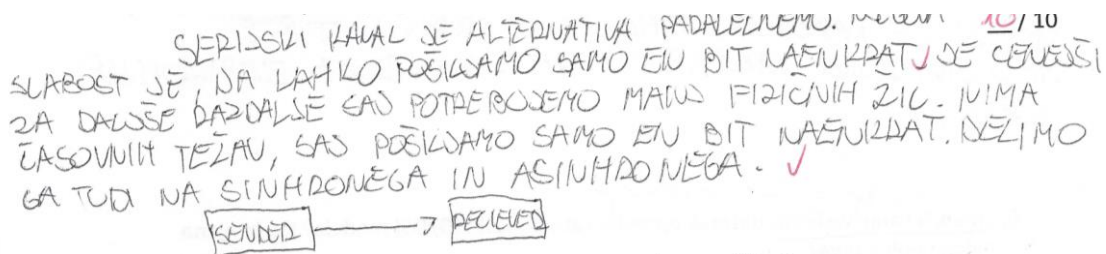 SERIJSKI KANAL JE ALTERNATIVA PARALELNEMU. NJEGOVA 10/10
SLABOST JE, DA LAHKO POŠILJAMO SAMO EN BIT NAENKRAT JE CENEJŠI
ZA DALJŠE RAZDALJE SAJ POTREBUJEMO MANJ FIZIČNIH ŽIC. NIMA
ČASOVNIH TEŽAV, SAJ POŠILJAMO SAMO EN BIT NAENKRAT. DELIMO
GA TUDI NA SINHRONEGA IN ASINHRONEGA.
SENDER RECIEVER